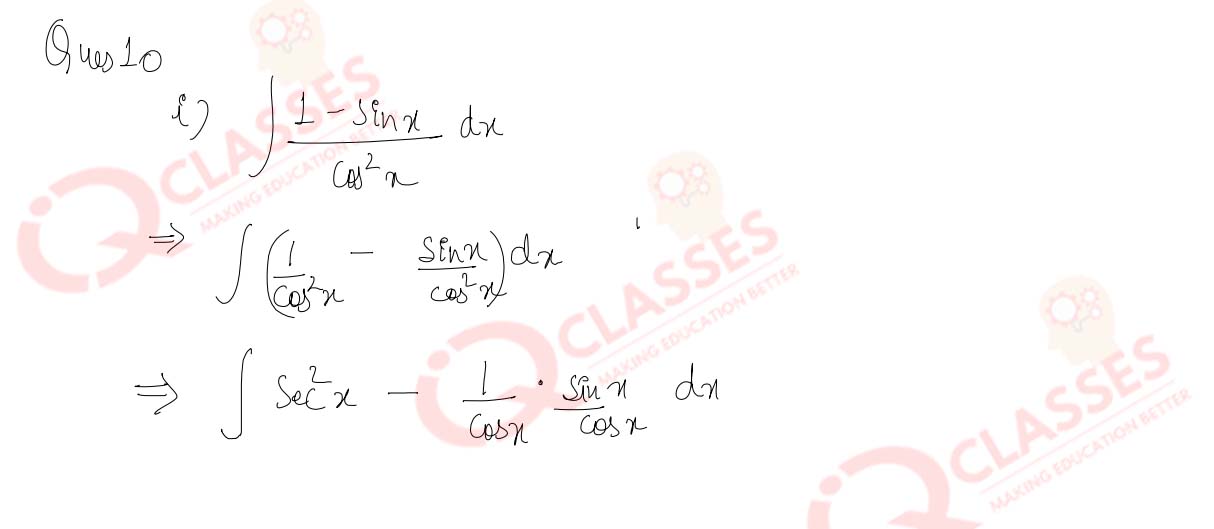 Ques 10
i) ∫ (1 - sinx)/(cos²x) dx
⇒ ∫ (1/(cos²x) - sinx/(cos²x)) dx
⇒ ∫ sec²x - 1/cosx · sinx/cosx dx
iQ CLASSES
MAKING EDUCATION BETTER
iQ CLASSES
MAKING EDUCATION BETTER
iQ CLASSES
MAKING EDUCATION BETTER